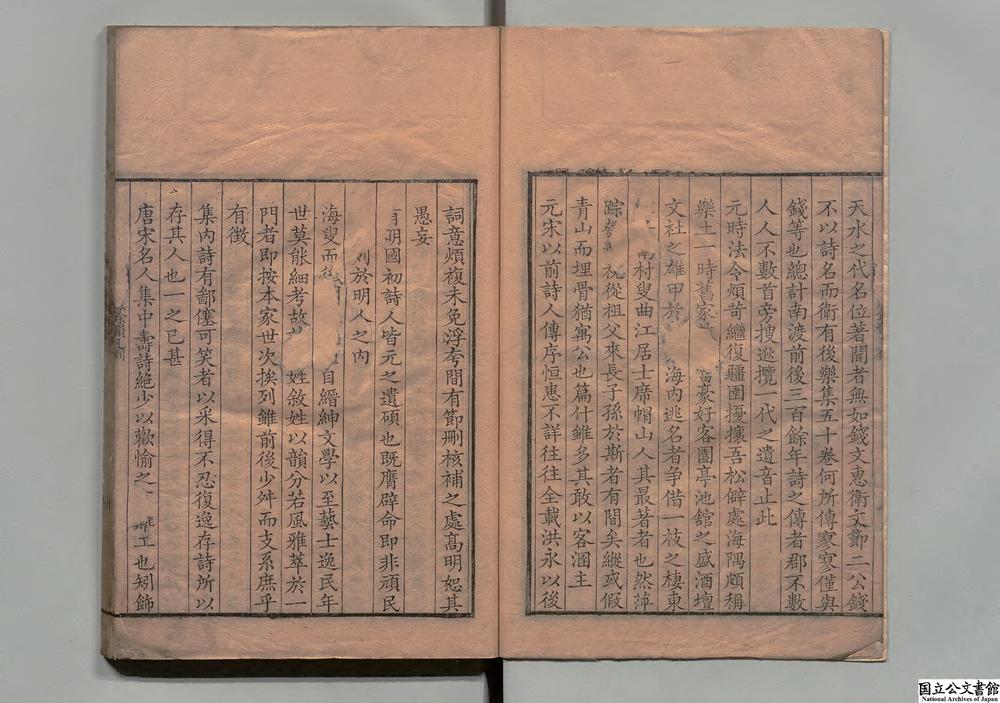 天水之代名位著聞者無如錢文惠衛文節二公錢
不以詩名而衛有後樂集五十卷何所傳寥寥僅與
錢等也總計南渡前後三百餘年詩之傳者郡不數
人人不數首旁搜遐攬一代之遺音止此
元時法令煩苛繼復疆圉擾攘吾松僻處海隅頗稱
樂土一時舊家 豪好客園亭池舘之盛酒壇
文社之雄甲於 海內逃名者爭借一枝之棲東
村叟曲江居士席帽山人其最著者也然萍
踪 從祖父來長子孫於斯者有間矣縱或假
青山而埋骨猶寓公也篇什雖多其敢以客溷主
元宋以前詩人傳序恒患不詳往往全載洪永以後
詞意煩複未免浮夸間有節刪核補之處高明恕其
愚妄
明國初詩人皆元之遺碩也既膺辟命即非頑民
列於明人之內
海叟而 自縉紳文學以至藝士逸民年
世莫能細考故 姓敘姓以韻分若風雅萃於一
門者即按本家世次挨列雖前後少舛而支系庶乎
有徵
集內詩有鄙僿可笑者以采得不忍復逸存詩所以
存其人也一之已甚
唐宋名人集中壽詩絕少以歡愉之 難工也矧飾
国立公文書館
National Archives of Japan